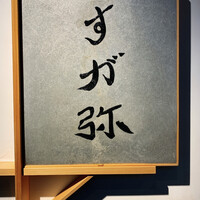 すが弥